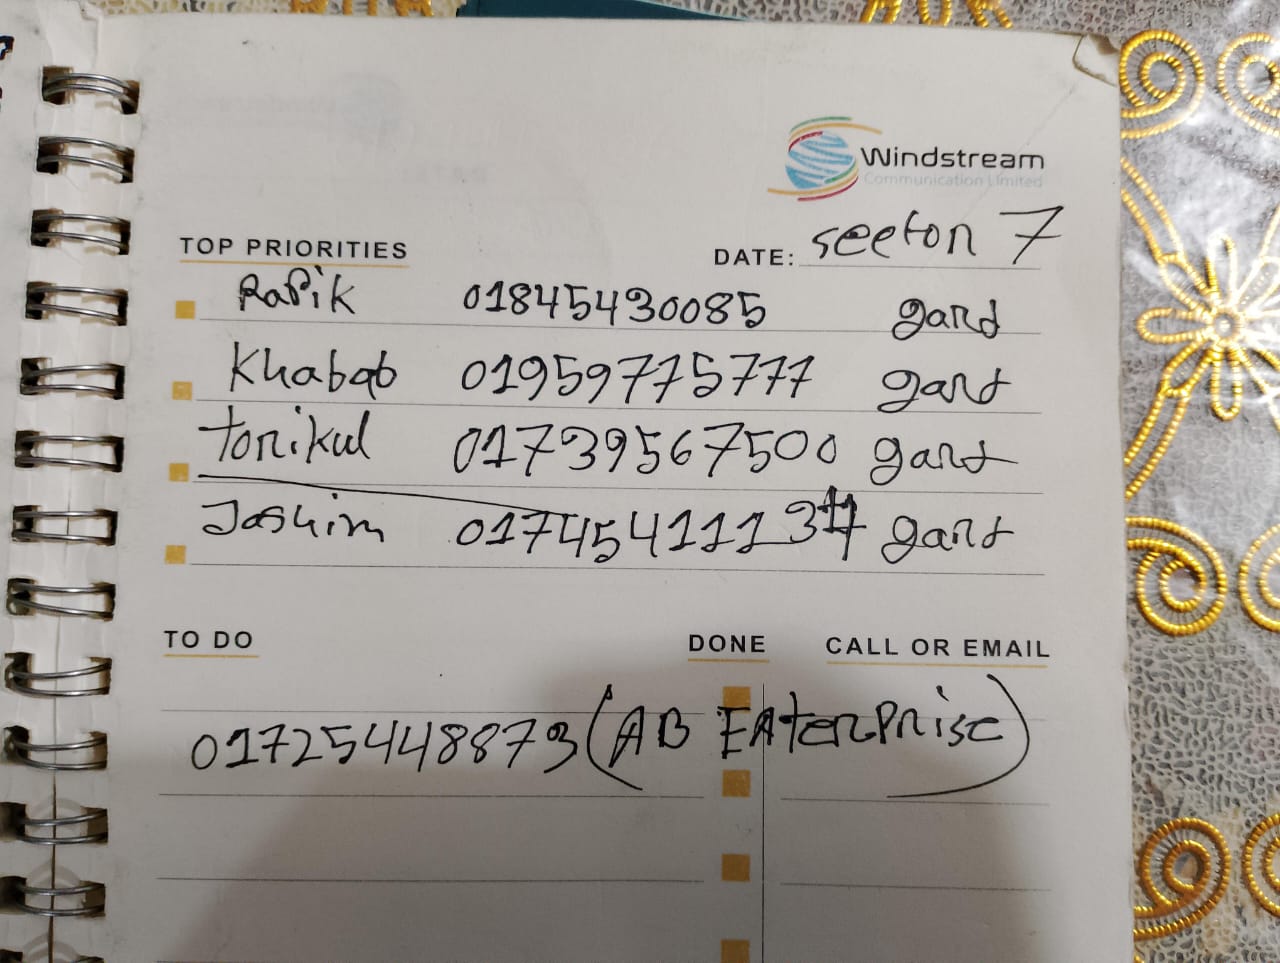 Windstream
Communication Limited
TOP PRIORITIES
DATE: seeton 7
Rafik 01845430085 gard
Khabab 01959775777 gard
torikul 01739567500 gard
Jashim 0174541113 gard
TO DO DONE CALL OR EMAIL
01725448873 (AB EAterprise)